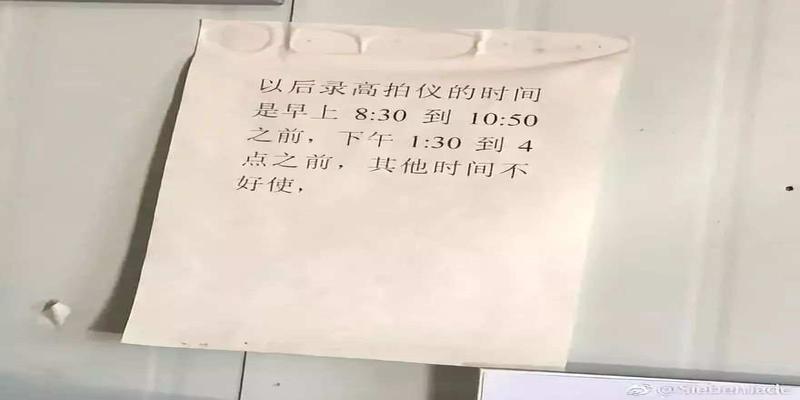 以后录高拍仪的时间
是早上 8:30 到 10:50
之前，下午 1:30 到 4
点之前，其他时间不
好使，